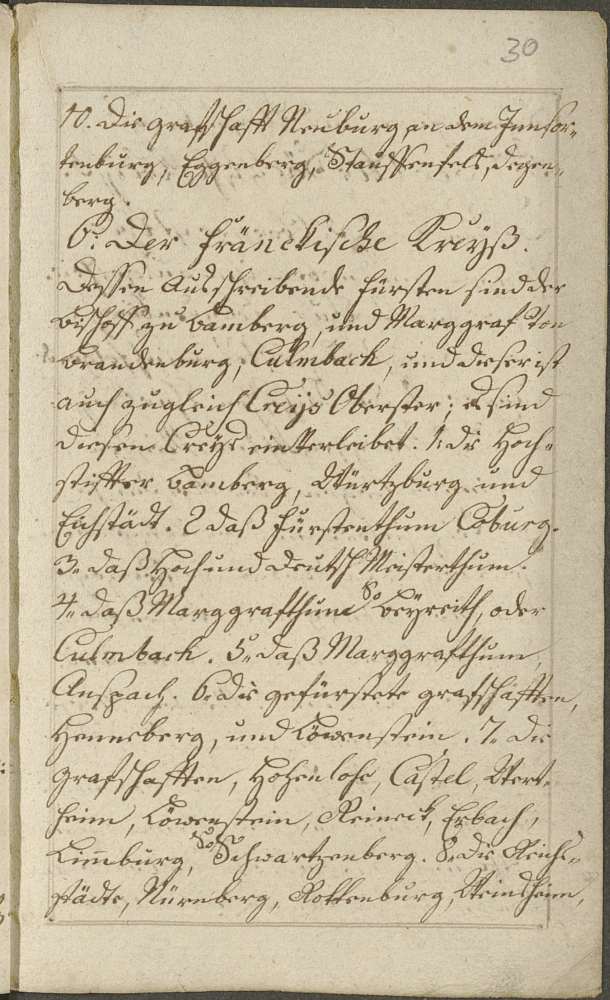 30
10. Die grafschafft Neuburg an dem Jnn, or-
tenburg, Eggenberg, Stauffenfels, degen-
berg.
6. Der fränckische Kreyß.
Dessen Ausschreibende fürsten sind der
Bischoff zu Bamberg, und Marggraf von
Brandenburg, Culmbach, und dieser ist
auch zugleich Creyß Oberster; es sind
diesen Creyß einverleibet. 1. die Hoch-
stiffter Bamberg, Würtzburg und
Eichstädt. 2 daß fürstenthum Coburg.
3. daß Hoch und deutsch Meisterthum.
4. daß Marggrafthum Beyreith, oder
Culmbach. 5. daß Marggrafthum,
Anspach. 6. die gefürstete grafschafften,
Henneberg, und Löwenstein. 7. die
grafschafften, Hohenlohe, Castel, Wert-
heim, Löwenstein, Reineck, Erbach,
Limburg, Schwartzenberg. 8. die Reichs-
städte, Nürnberg, Rottenburg, Weindsheim,